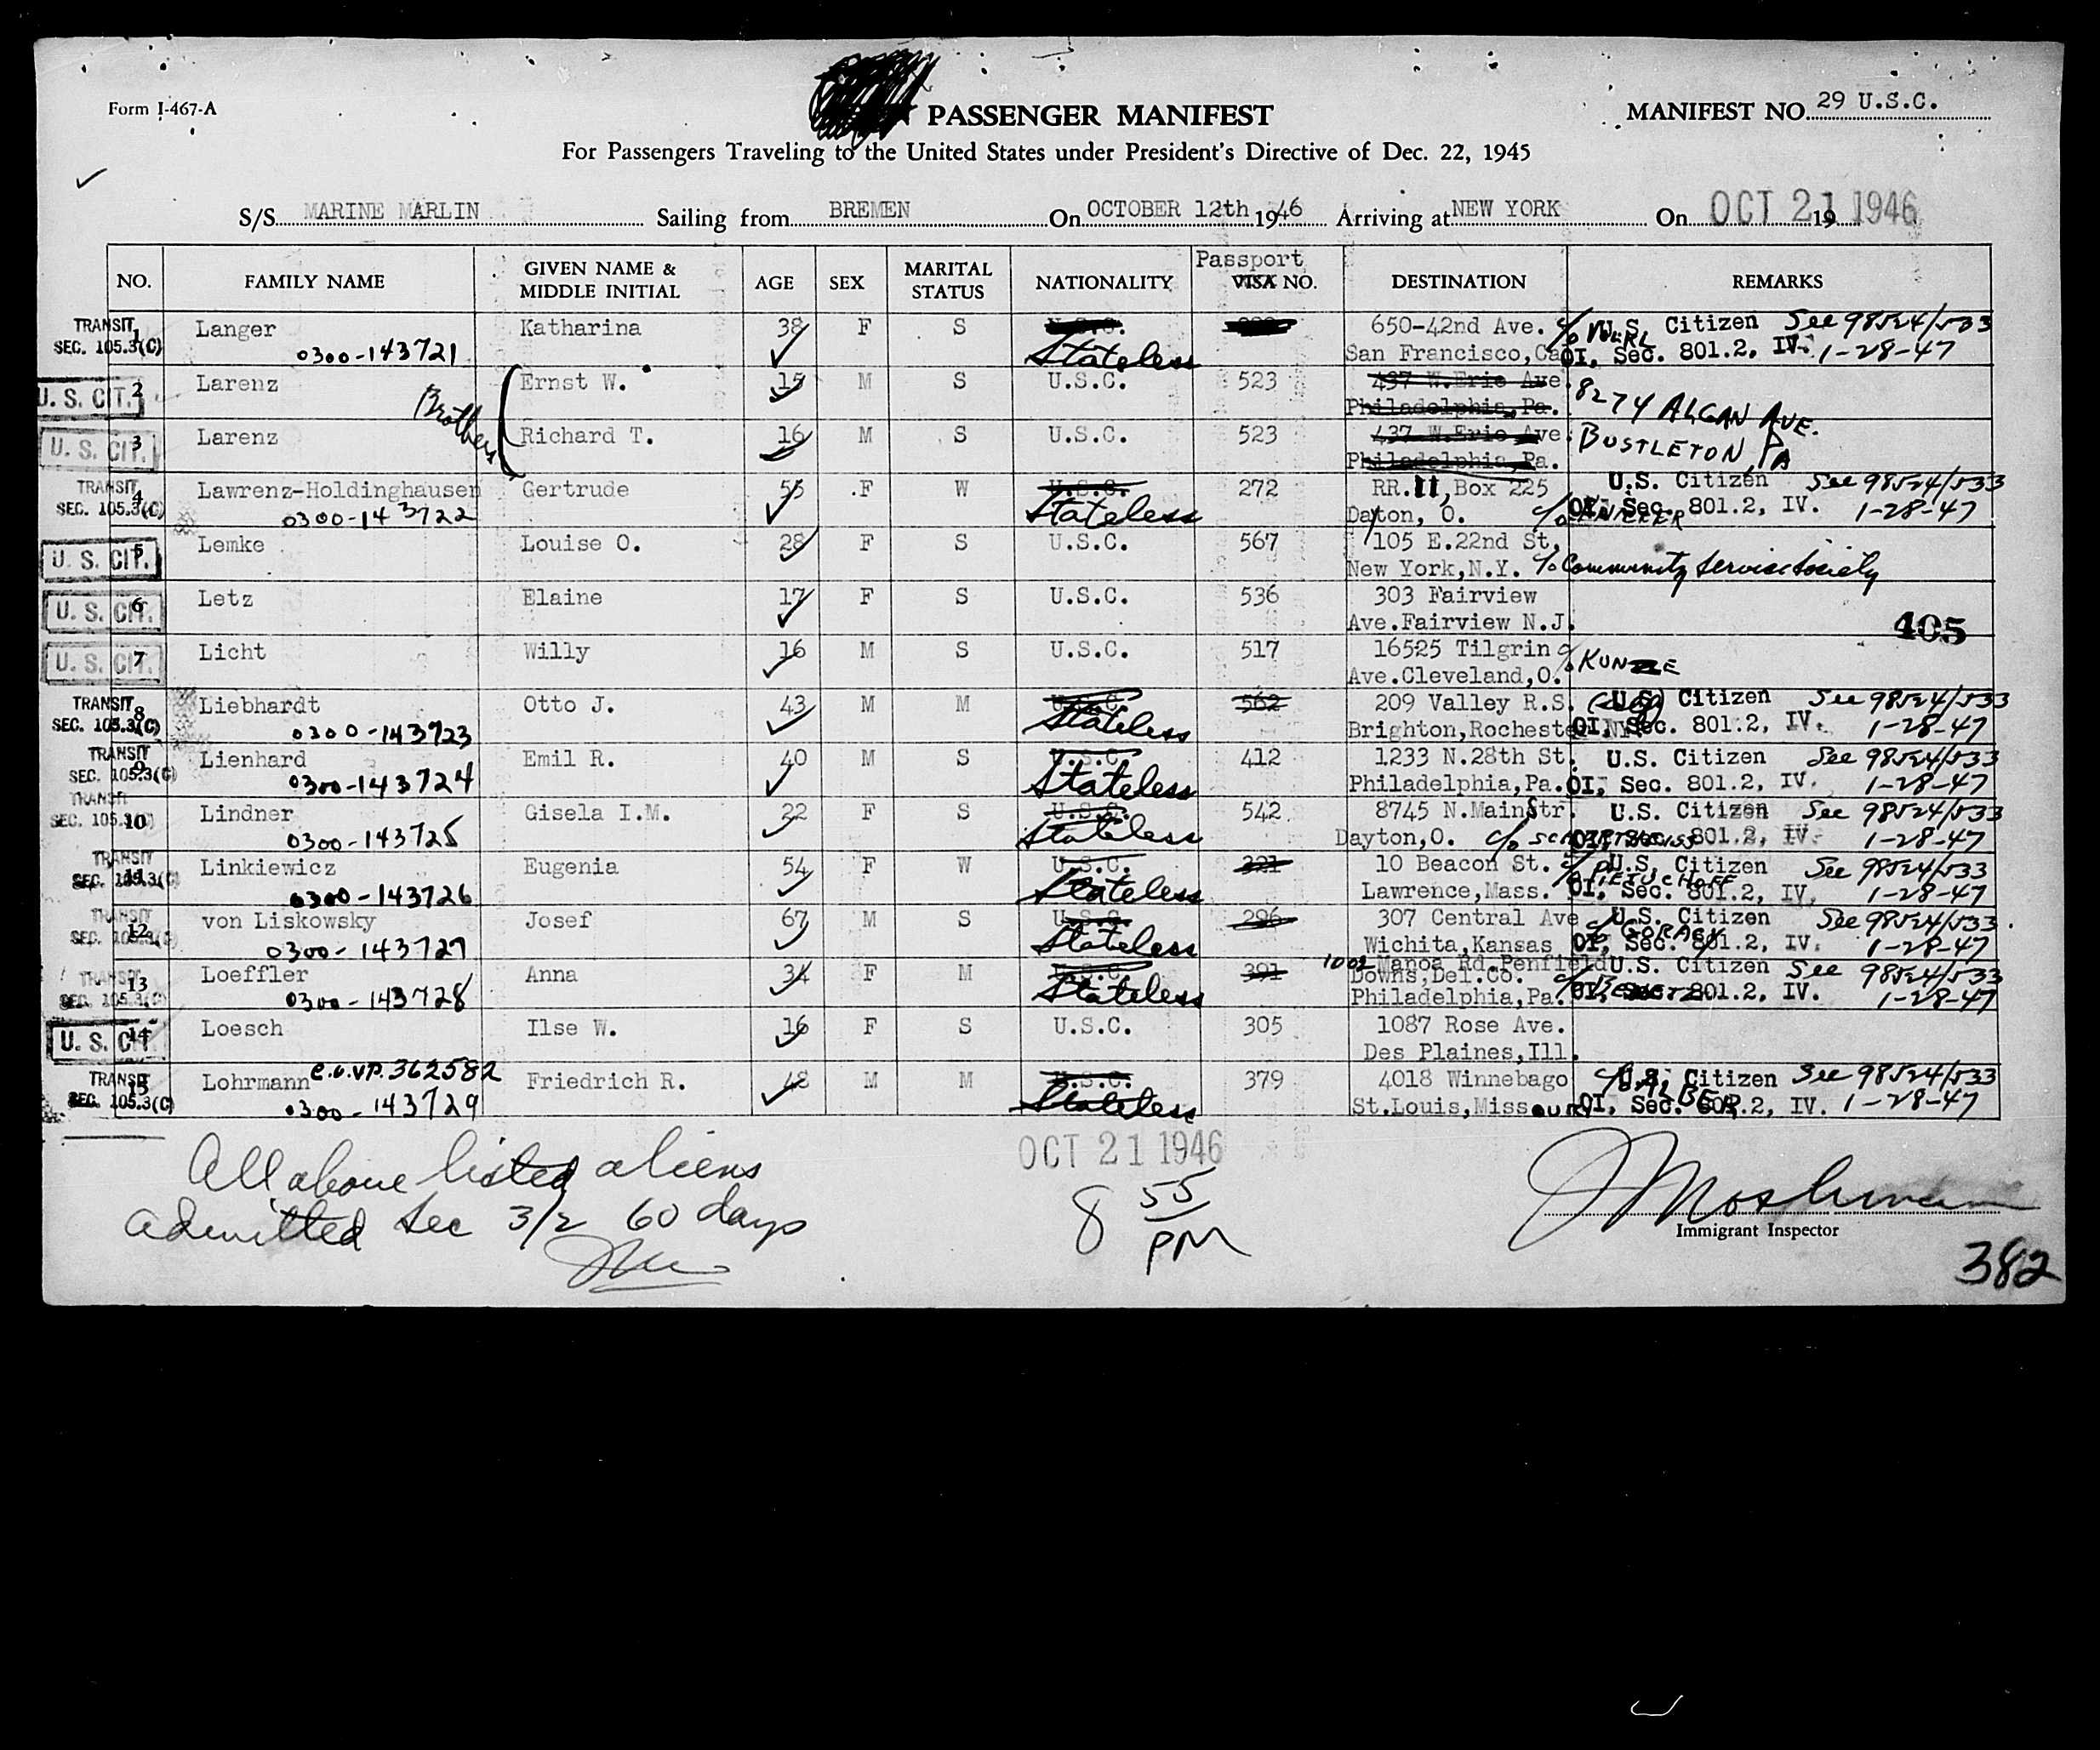 Form I-467-A
PASSENGER MANIFEST
MANIFEST NO. 29 U.S.C.
For Passengers Traveling to the United States under President's Directive of Dec. 22, 1945
S/S MARINE MARLIN Sailing from BREMEN On OCTOBER 12th 1946 Arriving at NEW YORK On OCT 21 19 1946
NO. FAMILY NAME GIVEN NAME & MIDDLE INITIAL AGE SEX MARITAL STATUS NATIONALITY Passport VISA NO. DESTINATION REMARKS
TRANSIT 1 Langer Katharina 38 F S U.S.C. 650-42nd Ave. U.S. Citizen See 98524/533
SEC. 105.3(C) 0300-143721 Stateless San Francisco, Cal OI, Sec. 801.2, IV. 1-28-47
U. S. CIT. 2 Larenz Brothers Ernst W. 15 M S U.S.C. 523 437 W.Erie Ave. 8274 ALGAN AVE.
Philadelphia, Pa.
U. S. CIT. 3 Larenz Richard T. 16 M S U.S.C. 523 437 W.Erie Ave. BUSTLETON, PA
Philadelphia, Pa.
TRANSIT 4 Lawrenz-Holdinghausen Gertrude 55 F W U.S.C. 272 RR.11, Box 225 U.S. Citizen See 98524/533
SEC. 105.3(C) 0300-143722 Stateless Dayton, O. c/o OI, Sec. 801.2, IV. 1-28-47
U. S. CIT. 5 Lemke Louise O. 28 F S U.S.C. 567 105 E.22nd St,
New York, N.Y. c/o Community Service Society
U. S. CIT. 6 Letz Elaine 17 F S U.S.C. 536 303 Fairview
Ave.Fairview N.J. 405
U. S. CIT. 7 Licht Willy 16 M S U.S.C. 517 16525 Tilgrin
Ave.Cleveland, O. c/o KUNZE
TRANSIT 8 Liebhardt Otto J. 43 M M U.S.C. 562 209 Valley R.S. U.S. Citizen See 98524/533
SEC. 105.3(C) 0300-143723 Stateless Brighton, Rochester NY OI, Sec. 801.2, IV. 1-28-47
TRANSIT 9 Lienhard Emil R. 40 M S U.S.C. 412 1233 N.28th St. U.S. Citizen See 98524/533
SEC. 105.3(C) 0300-143724 Stateless Philadelphia, Pa. OI, Sec. 801.2, IV. 1-28-47
TRANSIT 10 Lindner Gisela I.M. 22 F S U.S.C. 542 8745 N.Main Str. U.S. Citizen See 98524/533
SEC. 105.3(C) 0300-143725 Stateless Dayton, O. c/o OI, Sec. 801.2, IV. 1-28-47
TRANSIT 11 Linkiewicz Eugenia 54 F W U.S.C. 321 10 Beacon St. U.S. Citizen See 98524/533
SEC. 105.3(C) 0300-143726 Stateless Lawrence, Mass. c/o PIETUCHOFF OI, Sec. 801.2, IV. 1-28-47
TRANSIT 12 von Liskowsky Josef 67 M S U.S.C. 296 307 Central Ave U.S. Citizen See 98524/533
SEC. 105.3(C) 0300-143727 Stateless Wichita, Kansas OI, Sec. 801.2, IV. 1-28-47
TRANSIT 13 Loeffler Anna 34 F M U.S.C. 391 1002 Manoa Rd.Penfield U.S. Citizen See 98524/533
Downs, Del.Co.
SEC. 105.3(C) 0300-143728 Stateless Philadelphia, Pa. OI, Sec. 801.2, IV. 1-28-47
U. S. CIT 14 Loesch Ilse W. 16 F S U.S.C. 305 1087 Rose Ave.
Des Plaines, Ill.
TRANSIT 15 Lohrmann e.o.VP. 362582 Friedrich R. 48 M M U.S.C. 379 4018 Winnebago c/o ALBER U.S. Citizen See 98524/533
SEC. 105.3(C) 0300-143729 Stateless St.Louis, Missouri OI, Sec. 801.2, IV. 1-28-47
All above listed aliens
admitted Sec 3/2 60 days
OCT 21 1946
8 55 PM
J Moshman
Immigrant Inspector
382